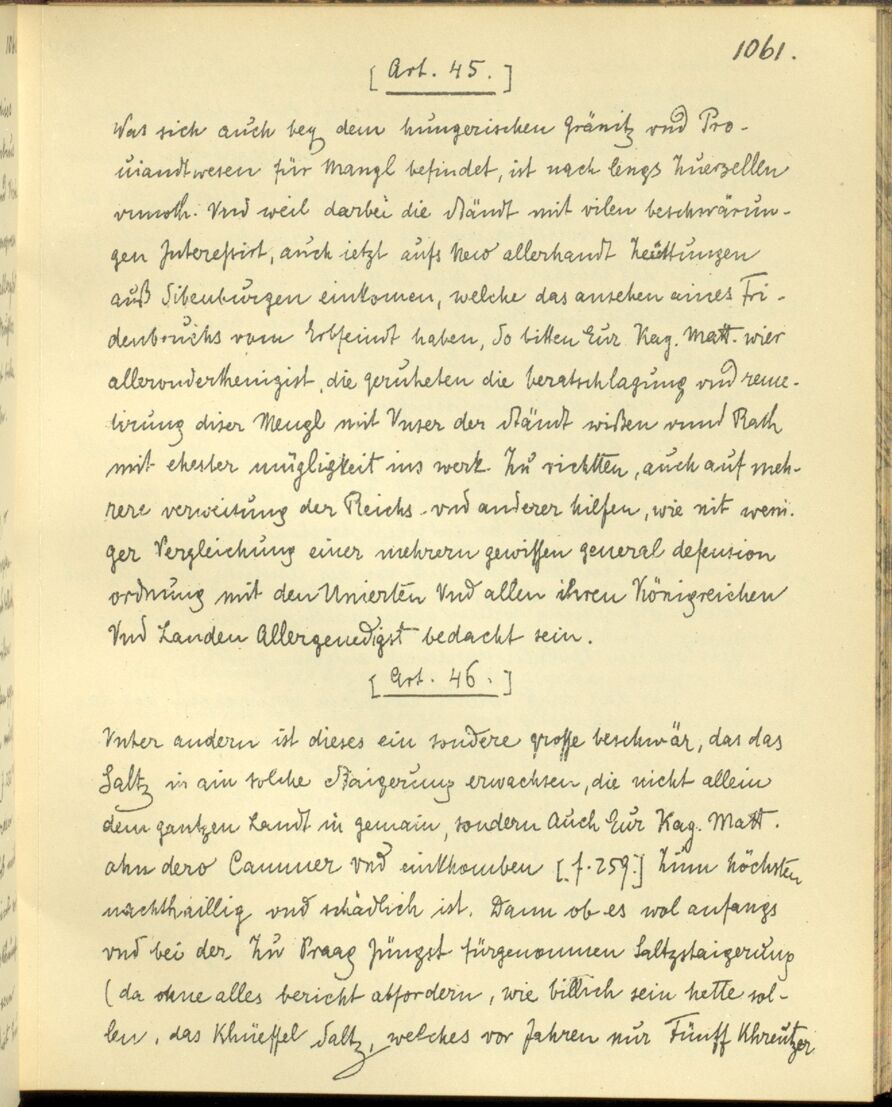 1061.
[Art. 45.]
Was sich auch bey dem hungerischen gränitz vnd Pro-
uiandtwesen für Mangl befindet, ist nach lengs Zuerzellen
vnnoth. Vnd weil darbei die Ständt mit vilen beschwärun-
gen Interessirt, auch ietzt aufs New allerhandt Zeüttungen
auß Sibenburgen einkomen, welche das ansehen aines Fri-
denbruchs vom Erbfeindt haben, So bitten Eur Kay. Matt. wier
allervnderthenigist, die geruheten die beratschlagung vnd reme-
tirung diser Mengl mit Vnser der Ständt wißen vnnd Rath
mit ehester mügligkeit ins werk Zu richtten, auch auf meh-
rere verweisung der Reichs- vnd anderer hilfen, wie nit weni-
ger Vergleichung einer mehrern gewissen general defension
ordnung mit den Unierten Vnd allen ihren Königreichen
Vnd Landen Allergenedigst bedacht sein.
[Art. 46.]
Vnter andern ist dieses ein sondere grosse beschwär, das das
Saltz in ain solche Staigerung erwachsen, die nicht allein
dem gantzen Landt in gemain, sondern Auch Eur Kay. Matt.
ahn dero Cammer vnd einkhomben [f. 259.] Zum höchsten
nachthaillig vnd schädlich ist. Dann ob es wol anfangs
vnd bei der Zu Praag Jüngst fürgenomnen Saltzstaigerung
(da ohne alles bericht abfordern, wie billich sein hette sol-
len, das Khüeffel Saltz, welches vor Jahren nur Fünff Khreutzer